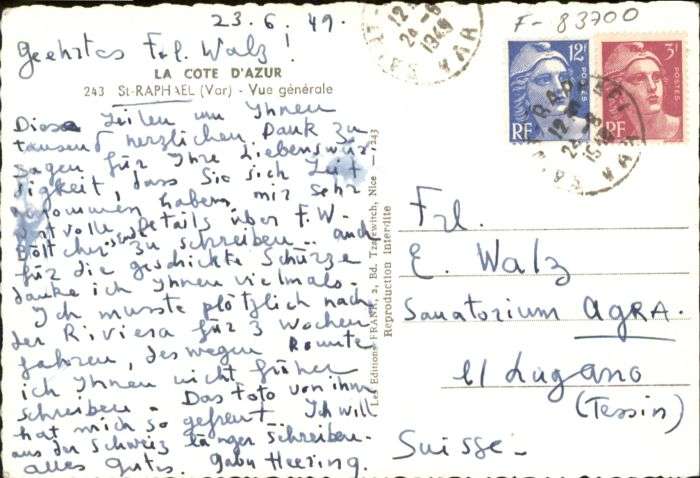 23.6.49.
F-83700
Geehrtes Frl. Walz!
LA COTE D'AZUR
243 St-RAPHAEL (Var) - Vue générale
Diese Zeilen um Ihnen
tausend herzlichen Dank zu
sagen für Ihre Liebenswür-
digkeit, dass Sie sich Zeit
genommen haben, mir sehr
wertvolle Details über F.W.
zu schreiben.. auch
für die geschickte Schürze
danke ich Ihnen vielmals.
Ich musste plötzlich nach
der Riviera für 3 Wochen
fahren, deswegen konnte
ich Ihnen nicht früher
schreiben. Das Foto von ihm
hat mich so gefreut. Ich will
aus der Schweiz länger schreiben.
alles Gutes. Gabu Heering.
Les Editions FRANK, 2, Bd. Tzarewitch, Nice — 1243
Reproduction Interdite
12F
POSTES
RF
3F
POSTES
RF
Frl.
E. Walz
Sanatorium AGRA.
Lugano
(Tessin)
Suisse.